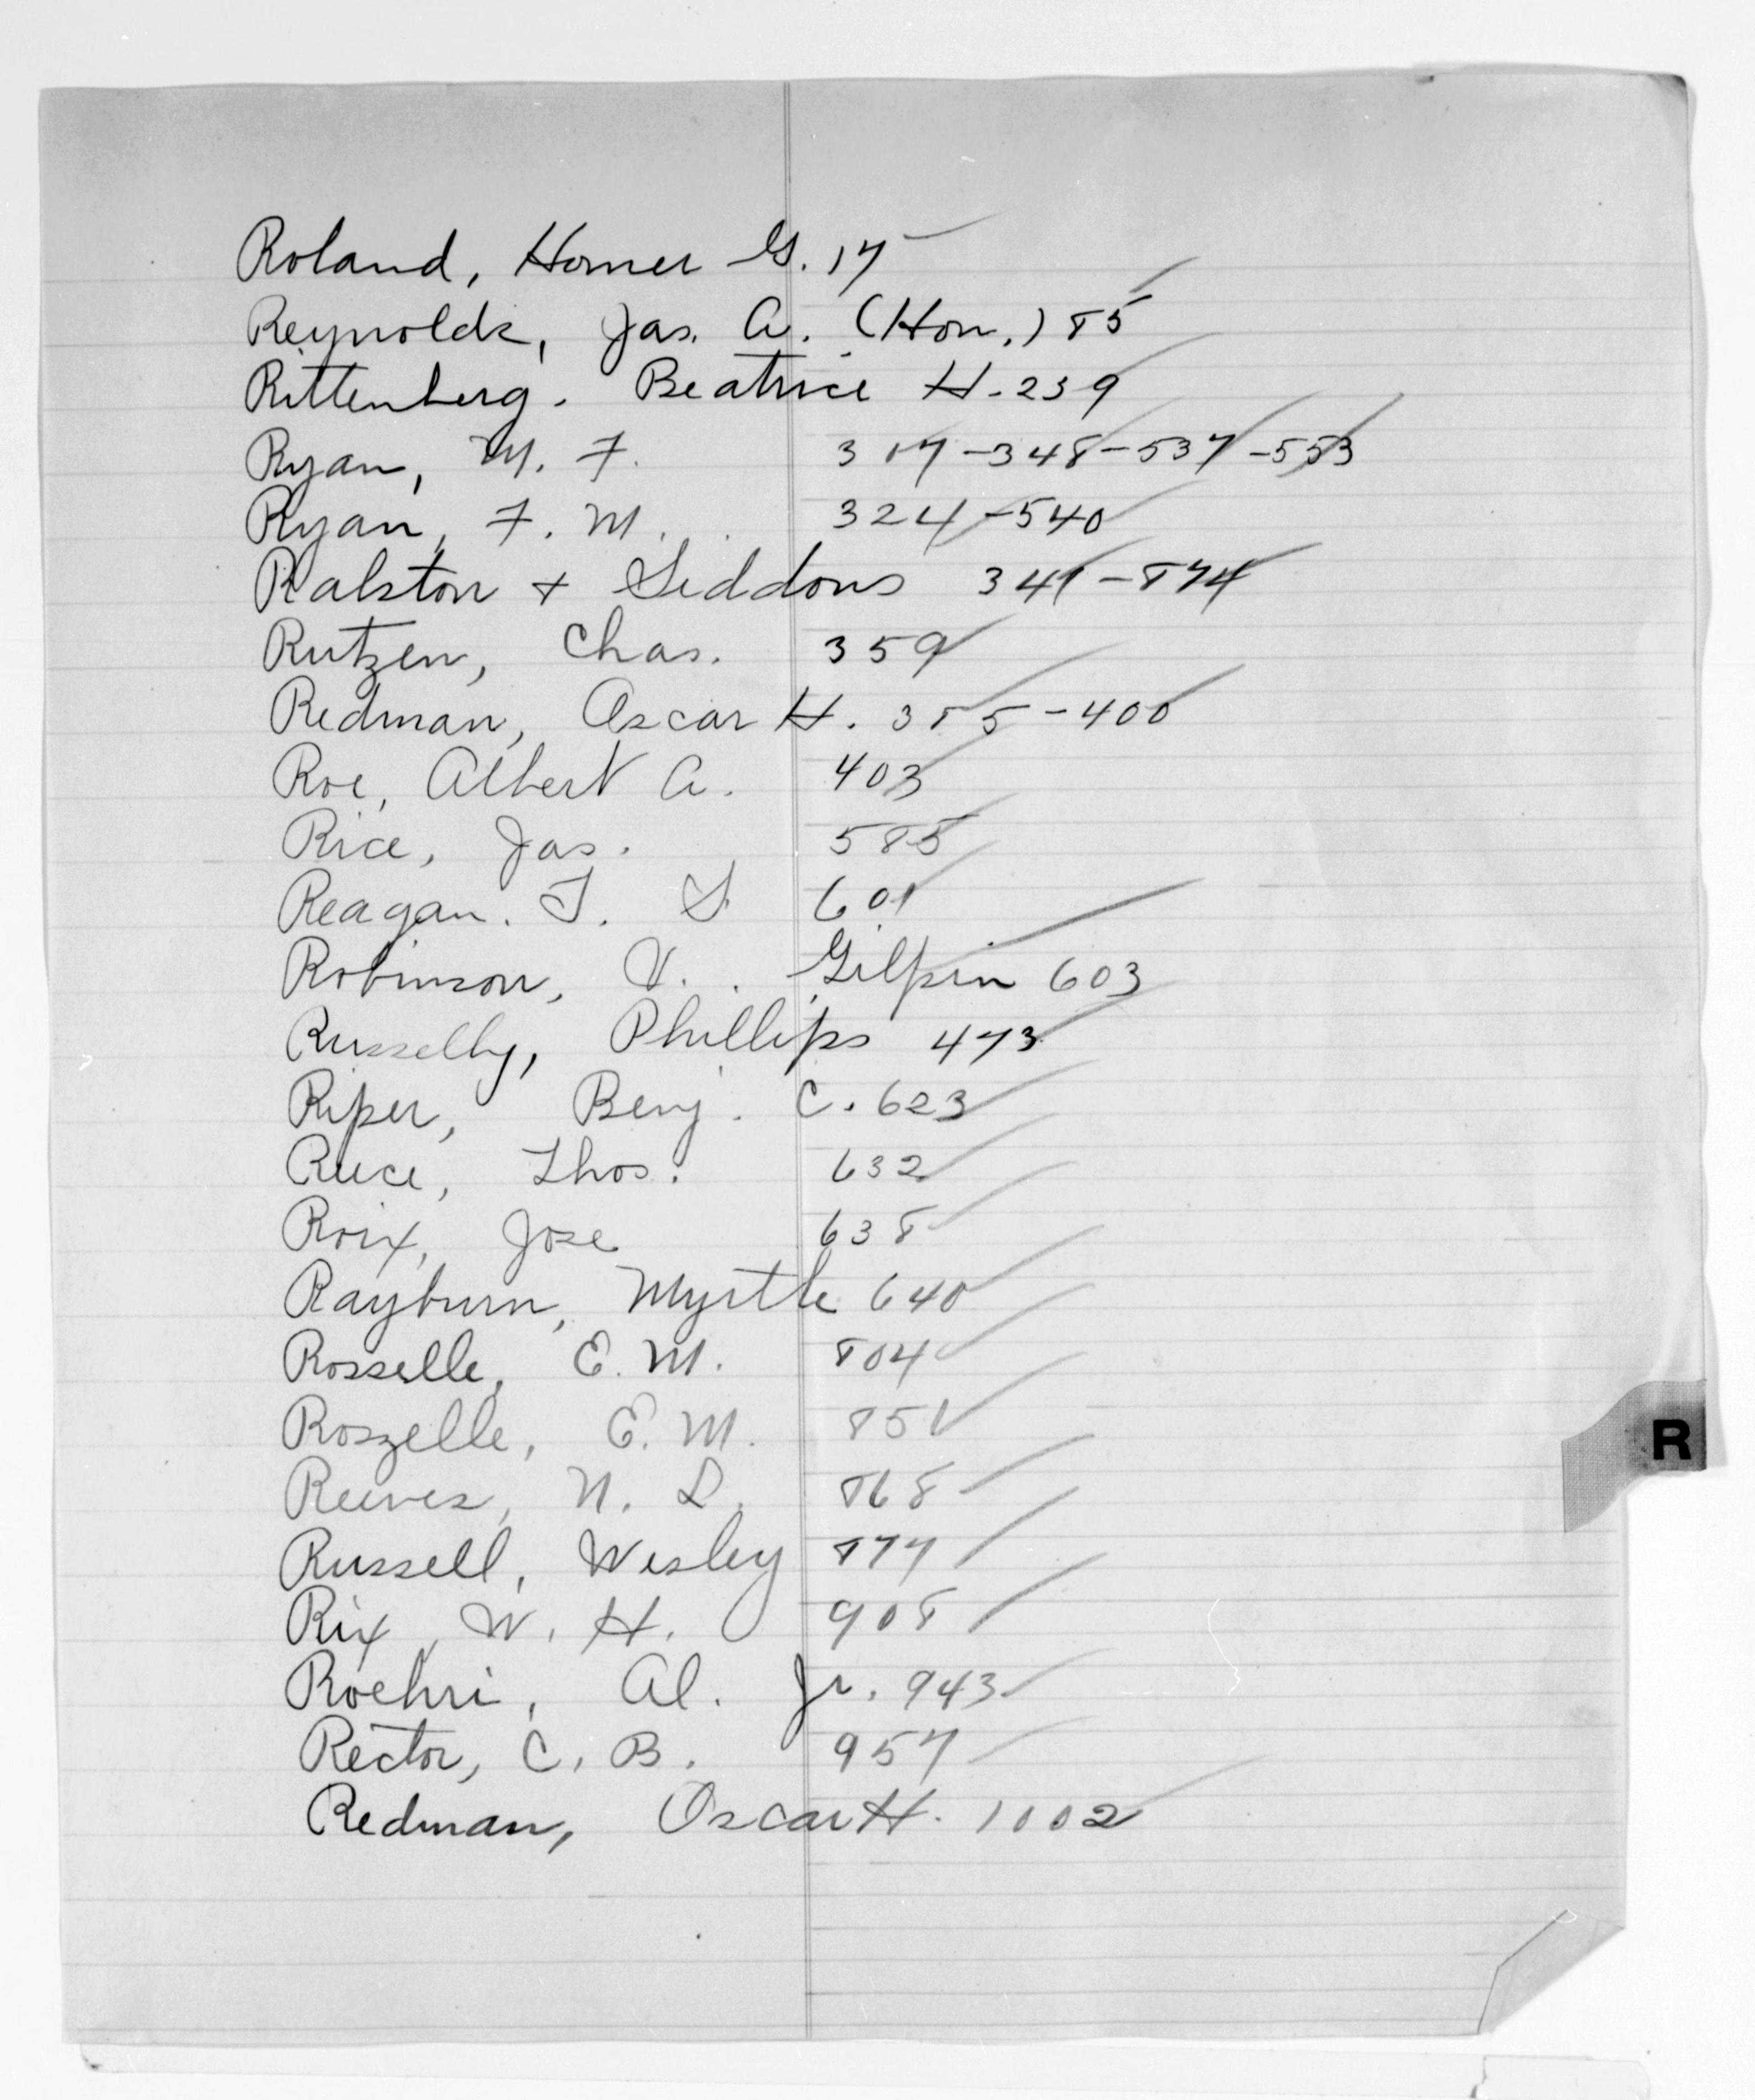 Roland, Homer G. 17
Reynolds, Jas. A. (Hon.) 85
Rittenberg. Beatrice H. 239
Ryan, M. F. 317-348-537-553
Ryan, F. M. 324-540
Ralston + Siddons 341-874
Rutzen, Chas. 359
Redman, Oscar H. 385-400
Roe, Albert A. 403
Rice, Jas. 585
Reagan. T. S. 601
Robinson, V. Gilpin 603
Russelly, Phillips 473
Riper, Benj. C. 623
Reece, Thos. 632
Roix, Jose 638
Rayburn, Myrtle 640
Rosselle, E. M. 804
Roszelle, E. M. 851
Reeves, N. L. 868
Russell, Wesley 877
Rix, W. H. 908
Roehri, Al. Jr. 943
Rector, C. B. 957
Redman, Oscar H. 1002
R